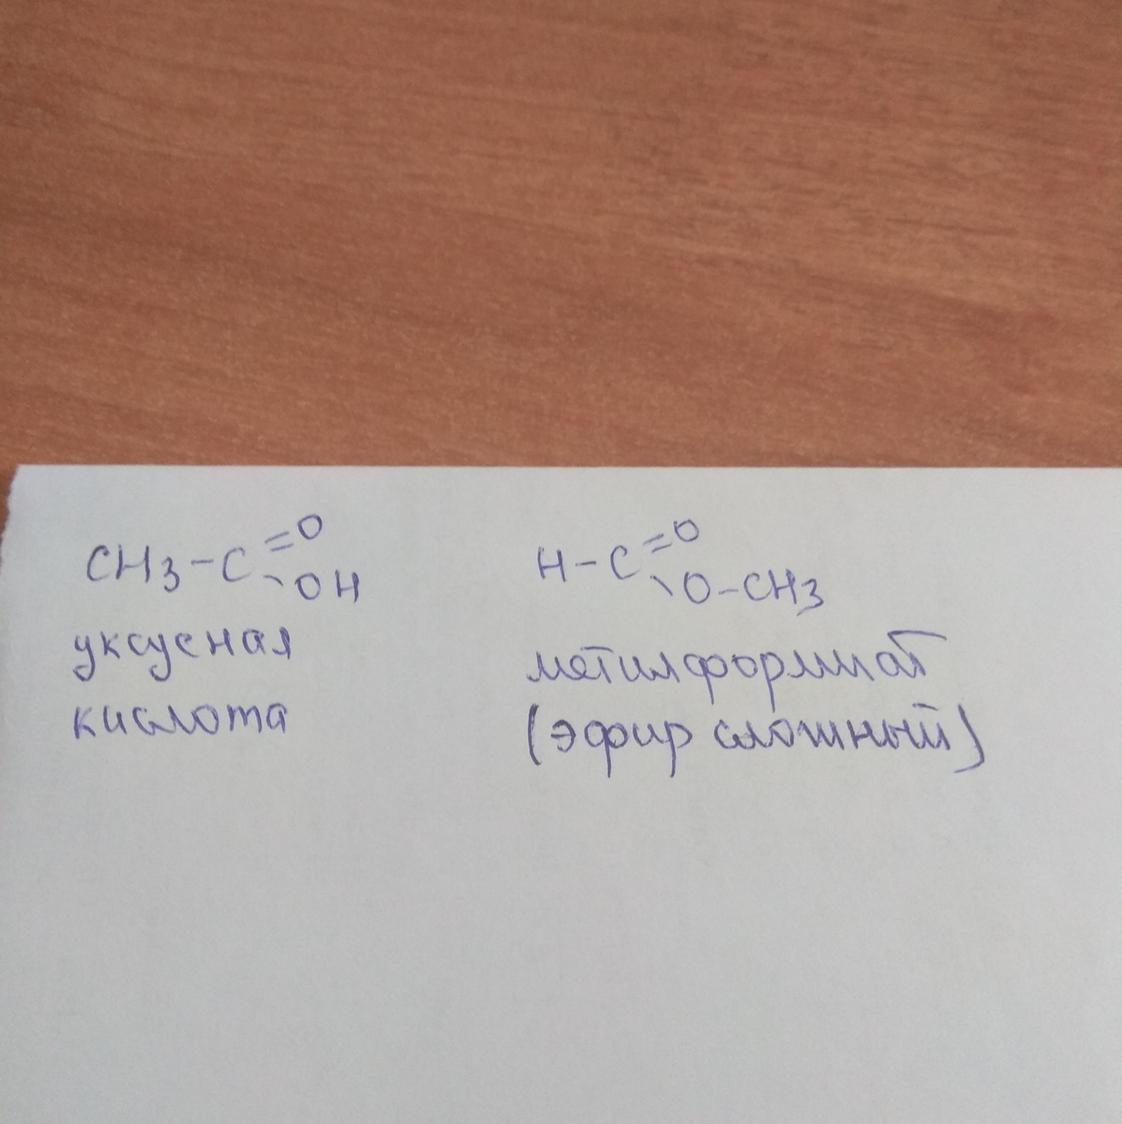 CH3-C=O
-OH
уксусная
кислота
H-C=O
\O-CH3
метилформиат
(эфир сложный)